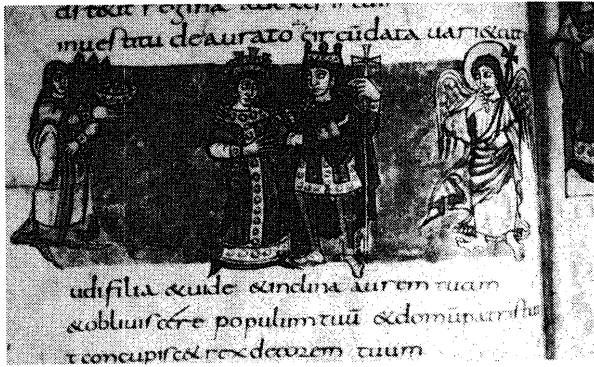 regina
inuestitu deaurato circūdata uari&ate
udifilia &uide &inclina aurem tuam
&obliuiscere populumtuū &domūpatristui
t concupisc& rex decorem tuum